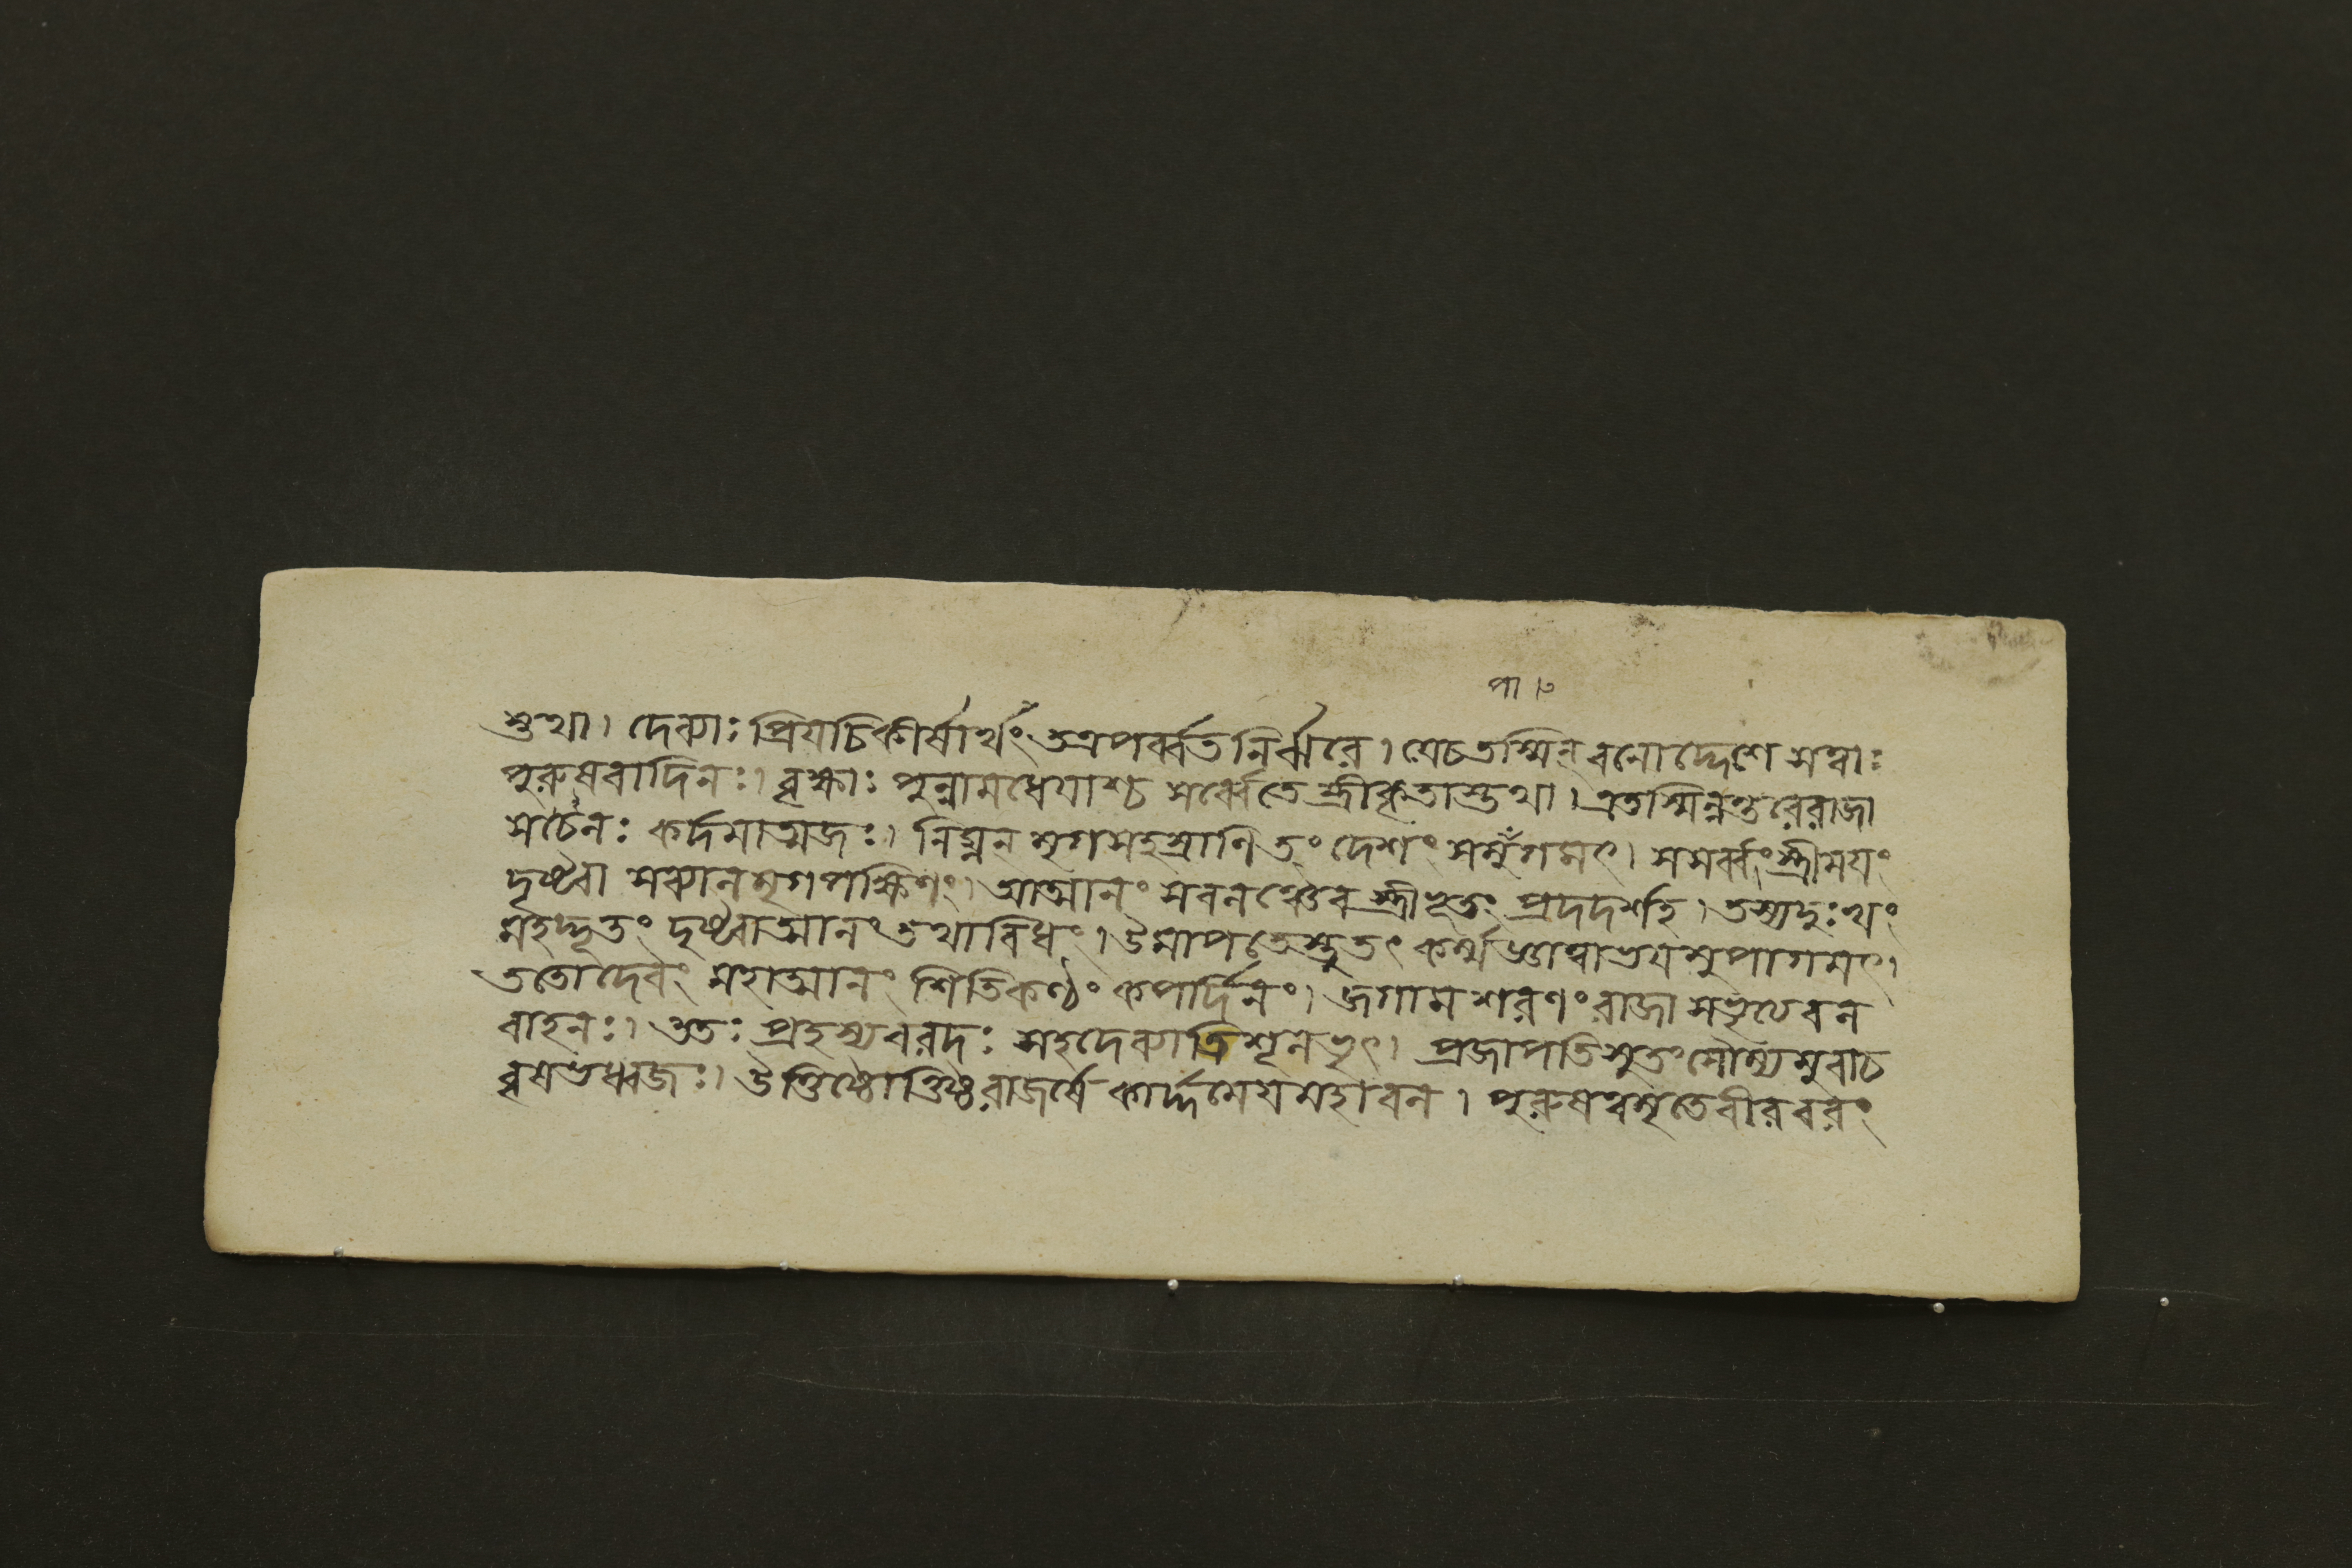 পা।৩
স্তথা। দেব্যাঃ প্রিয়চিকীর্ষার্থং তত্রপর্ব্বত নির্ঝরে। যেচতস্মিন্ বনোদ্দেশে সত্বাঃ
পুরুষবাদিনঃ। বৃক্ষাঃ পুন্নামধেযাশ্চ সর্ব্বেতে স্ত্রীকৃতাস্তথা। এতস্মিন্নন্তরেরাজা
সচৈনঃ কর্দমাত্মজঃ। নিঘ্নন্ মৃগসহস্রানি তং দেশং সমুঁগমৎ। সসর্ব্বংস্ত্রীময়ং
দৃষ্ট্বা সব্যানমৃগপক্ষিণং। আত্মানং সবনঞ্চৈব স্ত্রীভূতং প্রদদর্শহ। তস্যদুঃখং
মহদ্ভূতং দৃষ্ট্বাত্মানং তথাবিধং। উমাপতেস্তুতৎ কর্ম্মজ্ঞাত্বাত্রযমুপাগমৎ।
ততোদেবং মহাত্মানং শিতিকণ্ঠং কপর্দিনং। জগাম শরণং রাজা সভৃত্যবন
বাহনঃ। ততঃ প্রহস্যবরদঃ সহদেব্যাত্রিশূনভৃৎ। প্রজাপতিসুতং সৌম্যমুবাচ
বৃষভধ্বজঃ। উত্তিষ্ঠোত্তিষ্ঠরাজর্ষে কার্দ্দমেযমহাবন। পুরুষত্বমৃতেবীরবরং